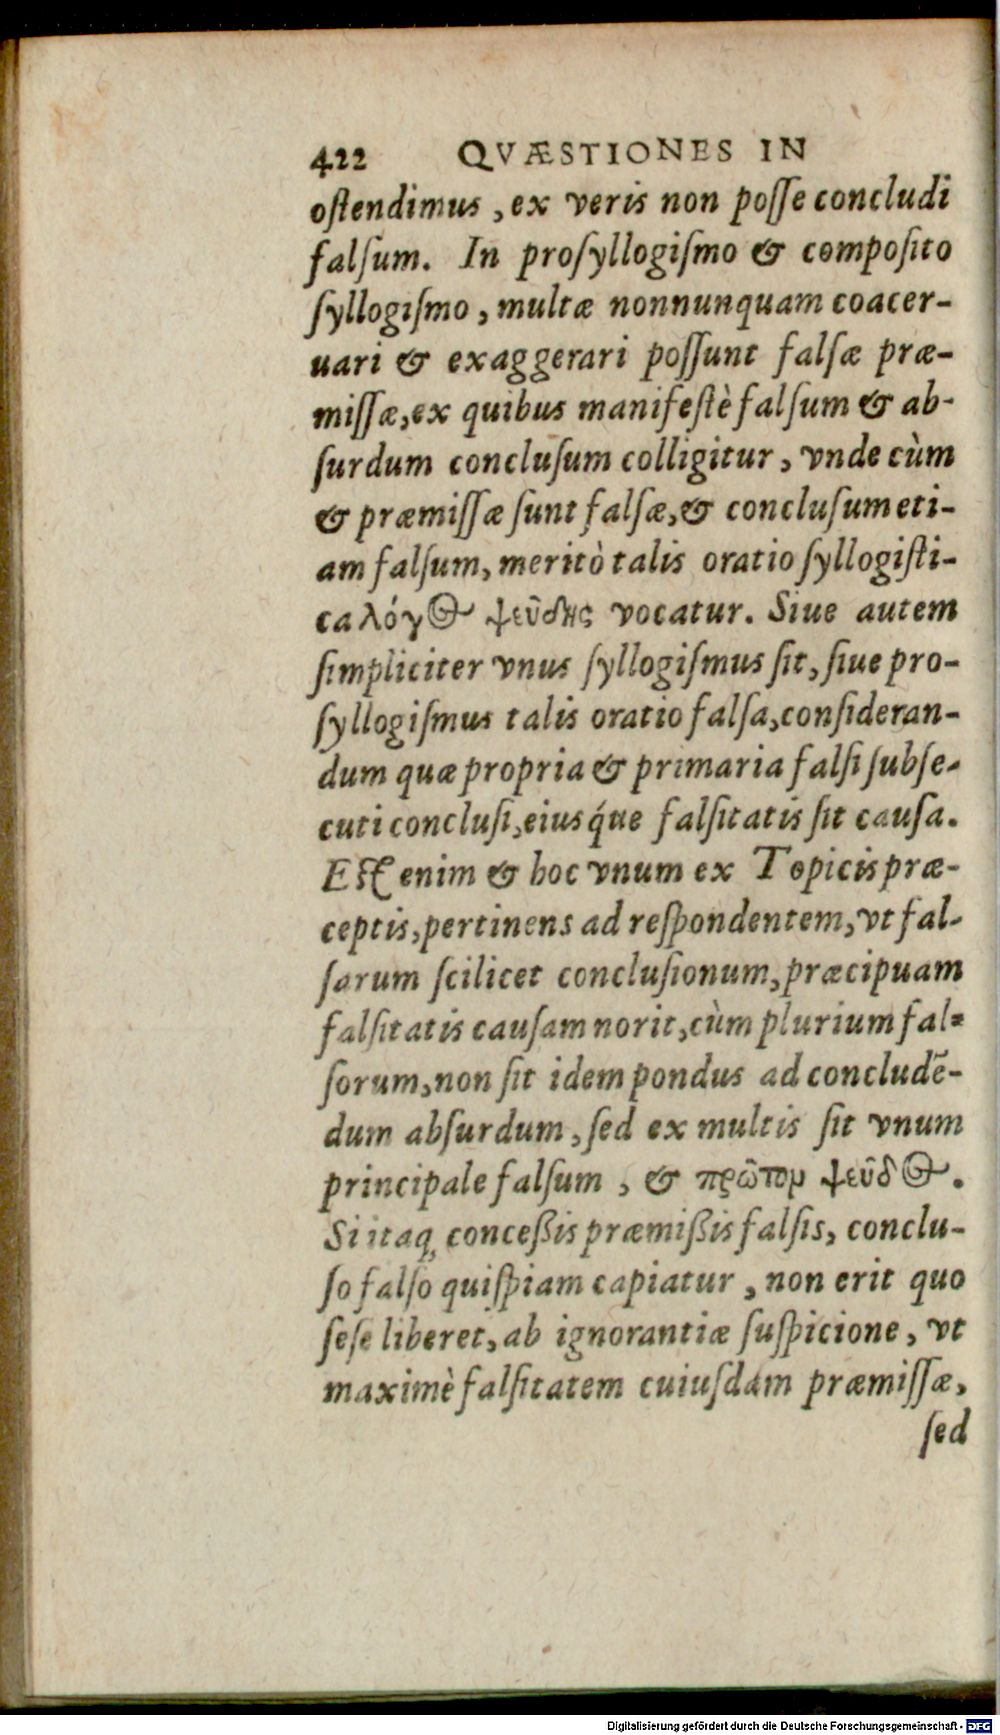 422 QVÆSTIONES IN
oſtendimus, ex veris non poſſe concludi
falſum. In proſyllogiſmo & compoſito
ſyllogiſmo, multæ nonnunquam coacer-
uari & exaggerari poſſunt falſæ præ-
miſſæ, ex quibus manifeſtè falſum & ab-
ſurdum concluſum colligitur, vnde cùm
& præmiſſæ ſunt falſæ, & concluſum eti-
am falſum, meritò talis oratio ſyllogiſti-
ca λόγος ψεῦδης vocatur. Siue autem
ſimpliciter vnus ſyllogiſmus ſit, ſiue pro-
ſyllogiſmus talis oratio falſa, conſideran-
dum quæ propria & primaria falſi ſubſe-
cuti concluſi, eiusq́ue falſitatis ſit cauſa.
Eſt enim & hoc vnum ex Topicis præ-
ceptis, pertinens ad reſpondentem, vt fal-
ſarum ſcilicet concluſionum, præcipuam
falſitatis cauſam norit, cùm plurium fal-
ſorum, non ſit idem pondus ad concludē-
dum abſurdum, ſed ex multis ſit vnum
principale falſum, & πρῶτον ψεῦδος.
Si itaq; conceßis præmißis falſis, conclu-
ſo falſo quiſpiam capiatur, non erit quo
ſeſe liberet, ab ignorantiæ ſuſpicione, vt
maximè falſitatem cuiuſdam præmiſſæ,
ſed
Digitalisierung gefördert durch die Deutsche Forschungsgemeinschaft - DFG